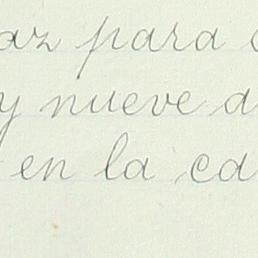 az para
y nueve a
en la ca